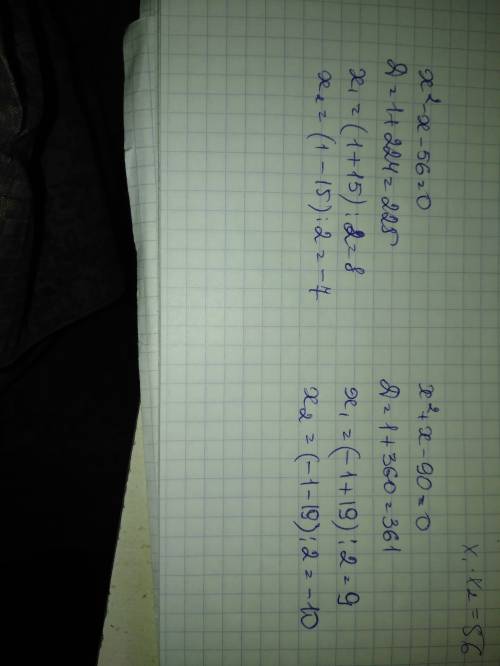 x₁ · x₂ = 56
x² - x - 56 = 0
D = 1 + 224 = 225
x₁ = (1 + 15) : 2 = 8
x₂ = (1 - 15) : 2 = -7
x² + x - 90 = 0
D = 1 + 360 = 361
x₁ = (-1 + 19) : 2 = 9
x₂ = (-1 - 19) : 2 = -10